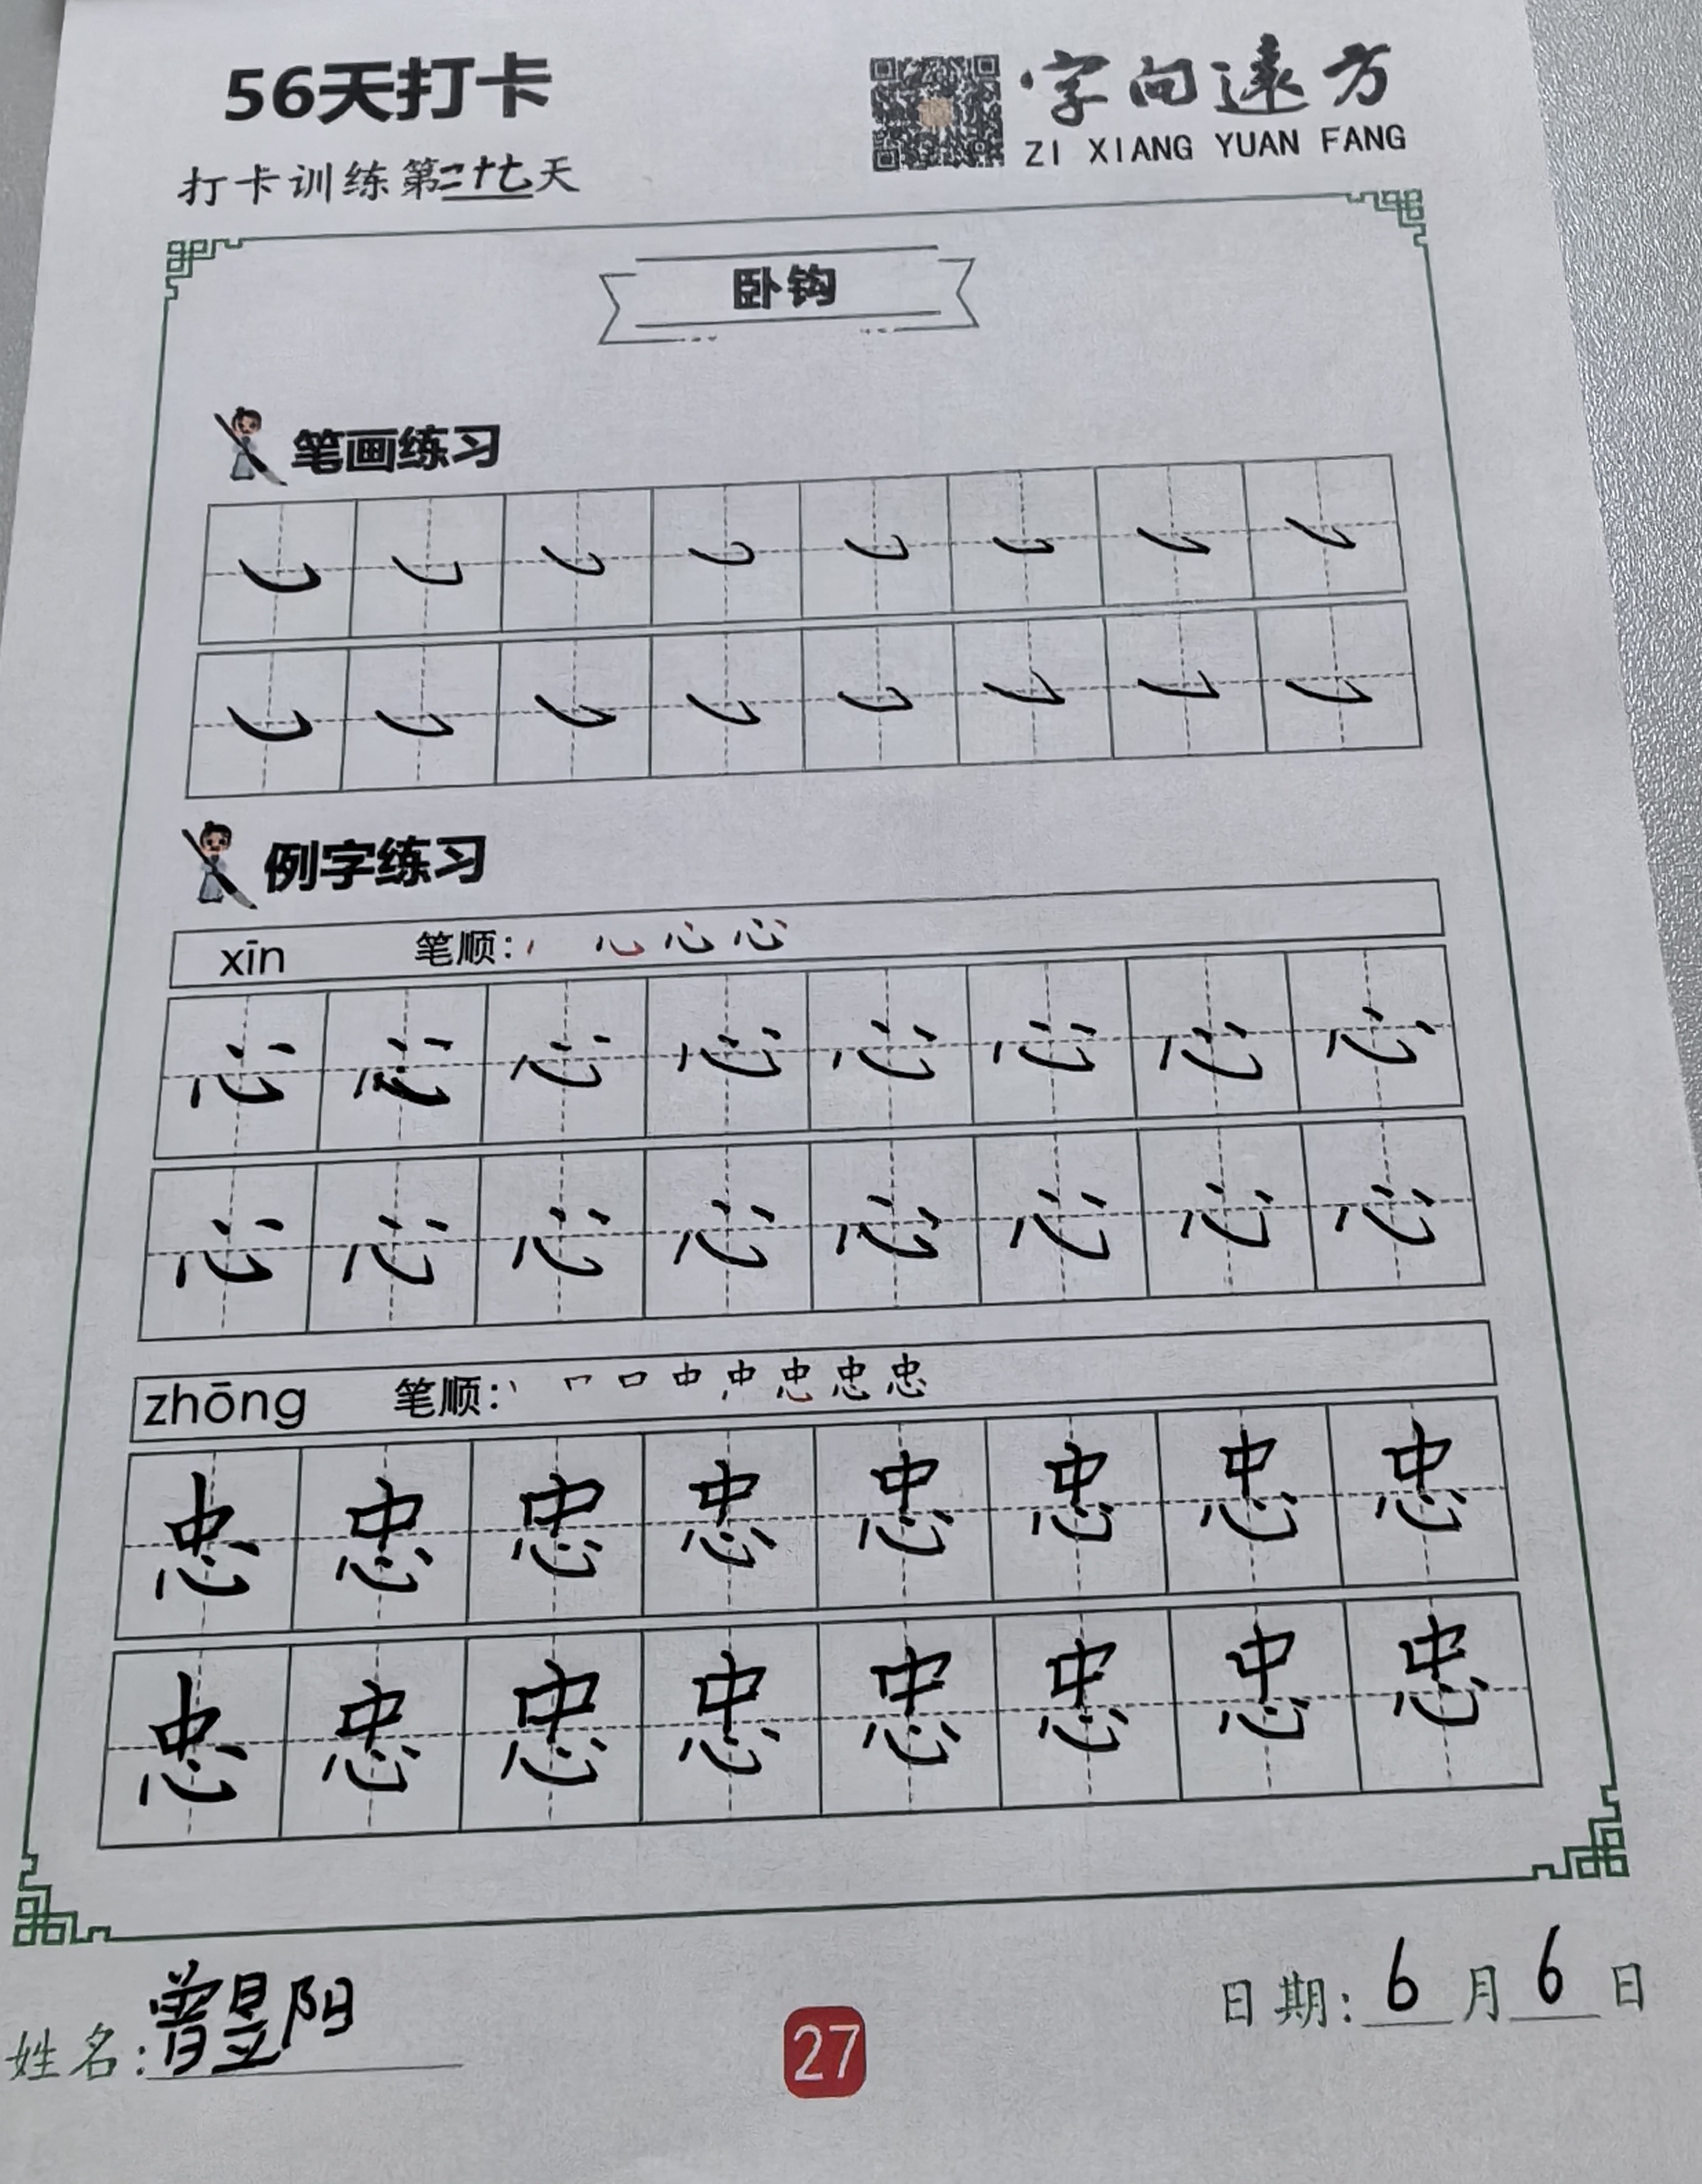 56天打卡
字向遠方
ZI XIANG YUAN FANG
打卡训练第二十七天
卧钩
笔画练习
例字练习
xīn 笔顺: 心 心 心
心 心 心 心 心 心 心 心
心 心 心 心 心 心 心 心
zhōng 笔顺: 丨 冖 口 中 忠 忠 忠 忠
忠 忠 忠 忠 忠 忠 忠 忠
忠 忠 忠 忠 忠 忠 忠 忠
姓名: 曾昱阳
27
日期: 6月6日